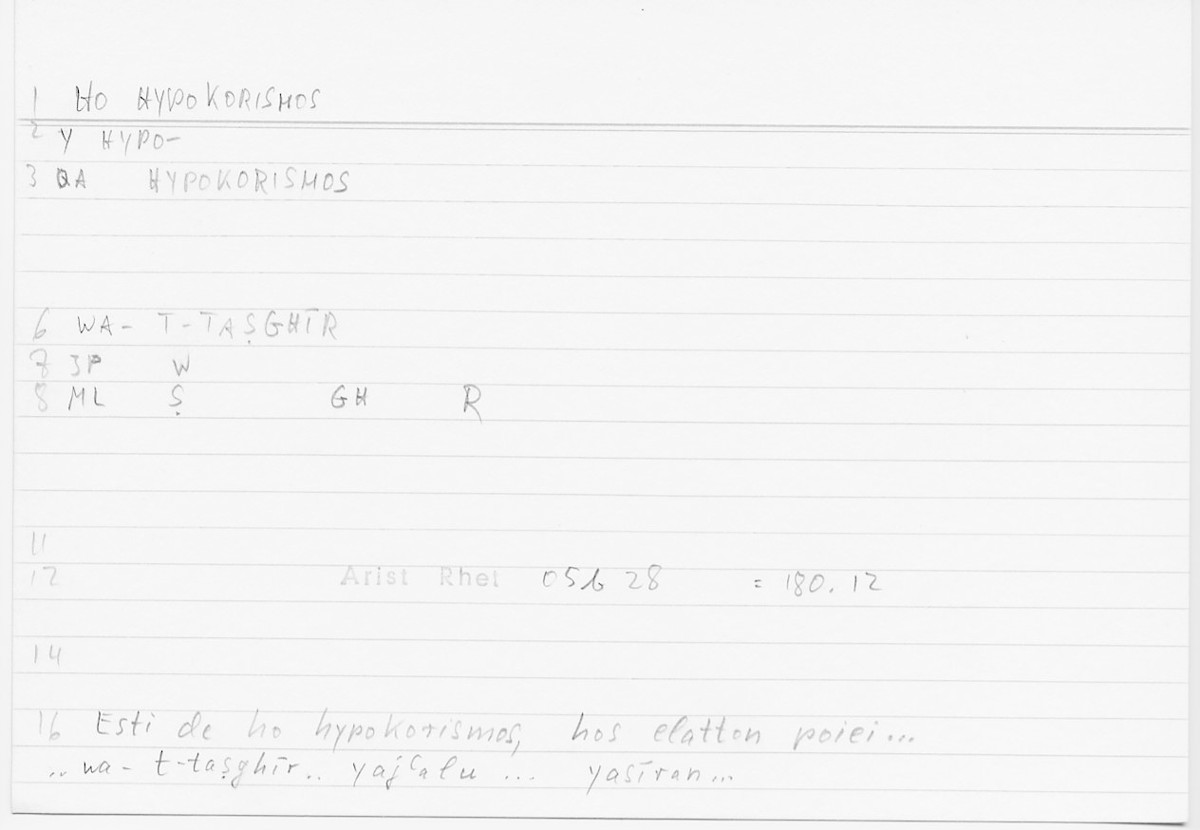 1 HO HYPOKORISMOS
2 Y HYPO-
3 QA HYPOKORISMOS
6 WA- T-TAṢGHĪR
7 3P W
8 ML Ṣ GH R
11
12 Arist Rhet 05b 28 = 180.12
14
16 Esti de ho hypokorismos, hos elatton poiei...
.. wa- t-taṣghīr.. yajʿalu ... yasīran...